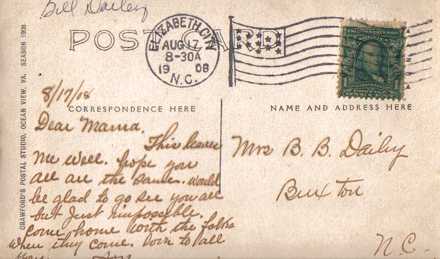 Bill Dailey
POST CA
ELIZABETH CITY
AUG 17
8-30A
1908
N.C.
CRAWFORD'S POSTAL STUDIO, OCEAN VIEW, VA. SEASON 1908
8/17/08
CORRESPONDENCE HERE
NAME AND ADDRESS HERE
Dear Mama.
This leaves
me well. hope you
all are the same. would
be glad to see you all
but Just impossible.
come home with the folks
when they come. love to all
Mrs B. B. Dailey
Buxton
N.C.